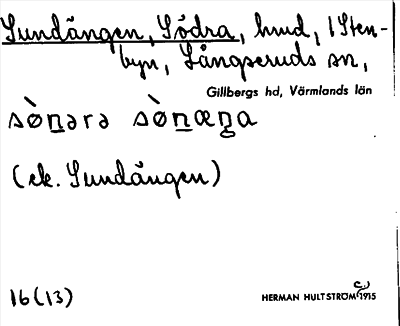 Sundängen, Södra, hmd, i Sten-
byn, Långseruds sn,
Gillbergs hd, Värmlands län
sònərə sònæŋa
(ek. Sundängen)
16 (13)
HERMAN HULTSTRÖM 1915